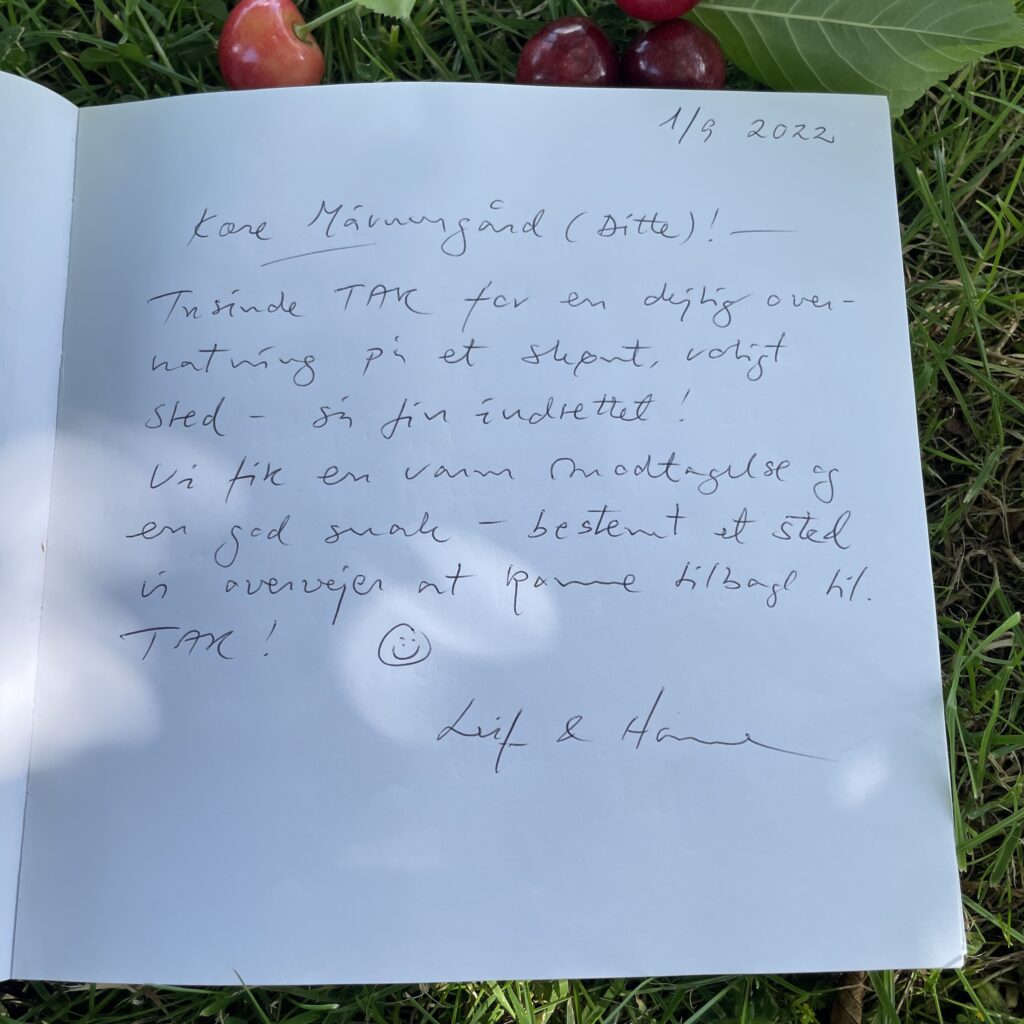 1/9 2022
Kære (Ditte)! —
Tusinde TAK for en dejlig over-
natning på et skønt, roligt
sted – så fin indrettet!
Vi fik en varm modtagelse og
en god snak – bestemt et sted
vi overvejer at komme tilbage til.
TAK! ☺
Leif & Hanne